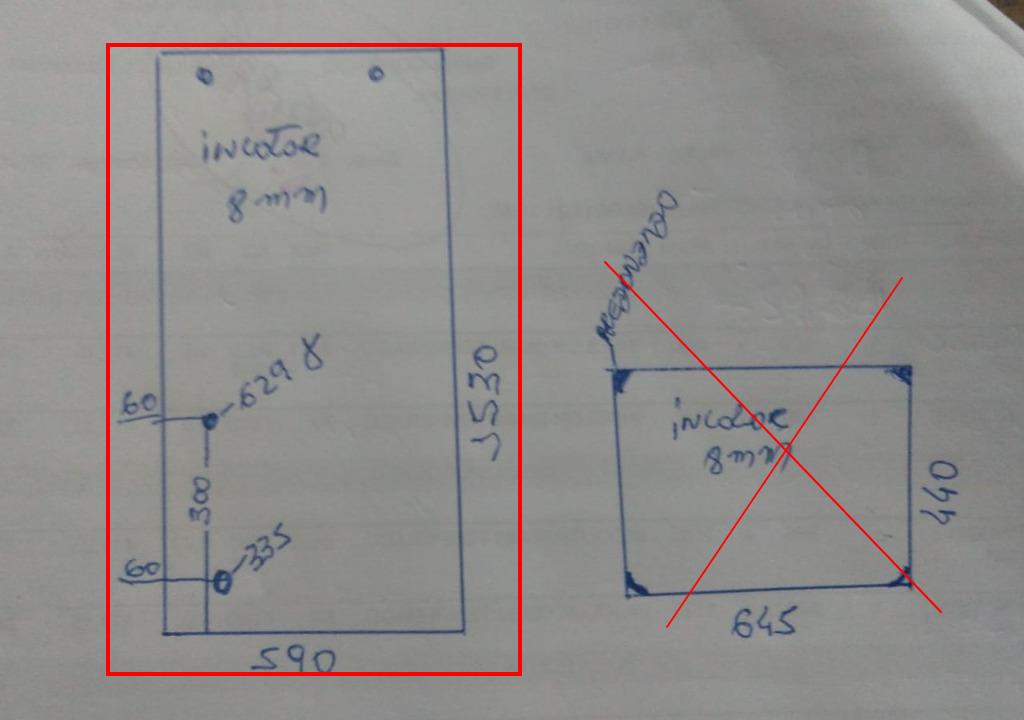 incolor
8mm
629 8
60
300
335
60
1530
590
ARREDONDADO
incolor
8mm
440
645